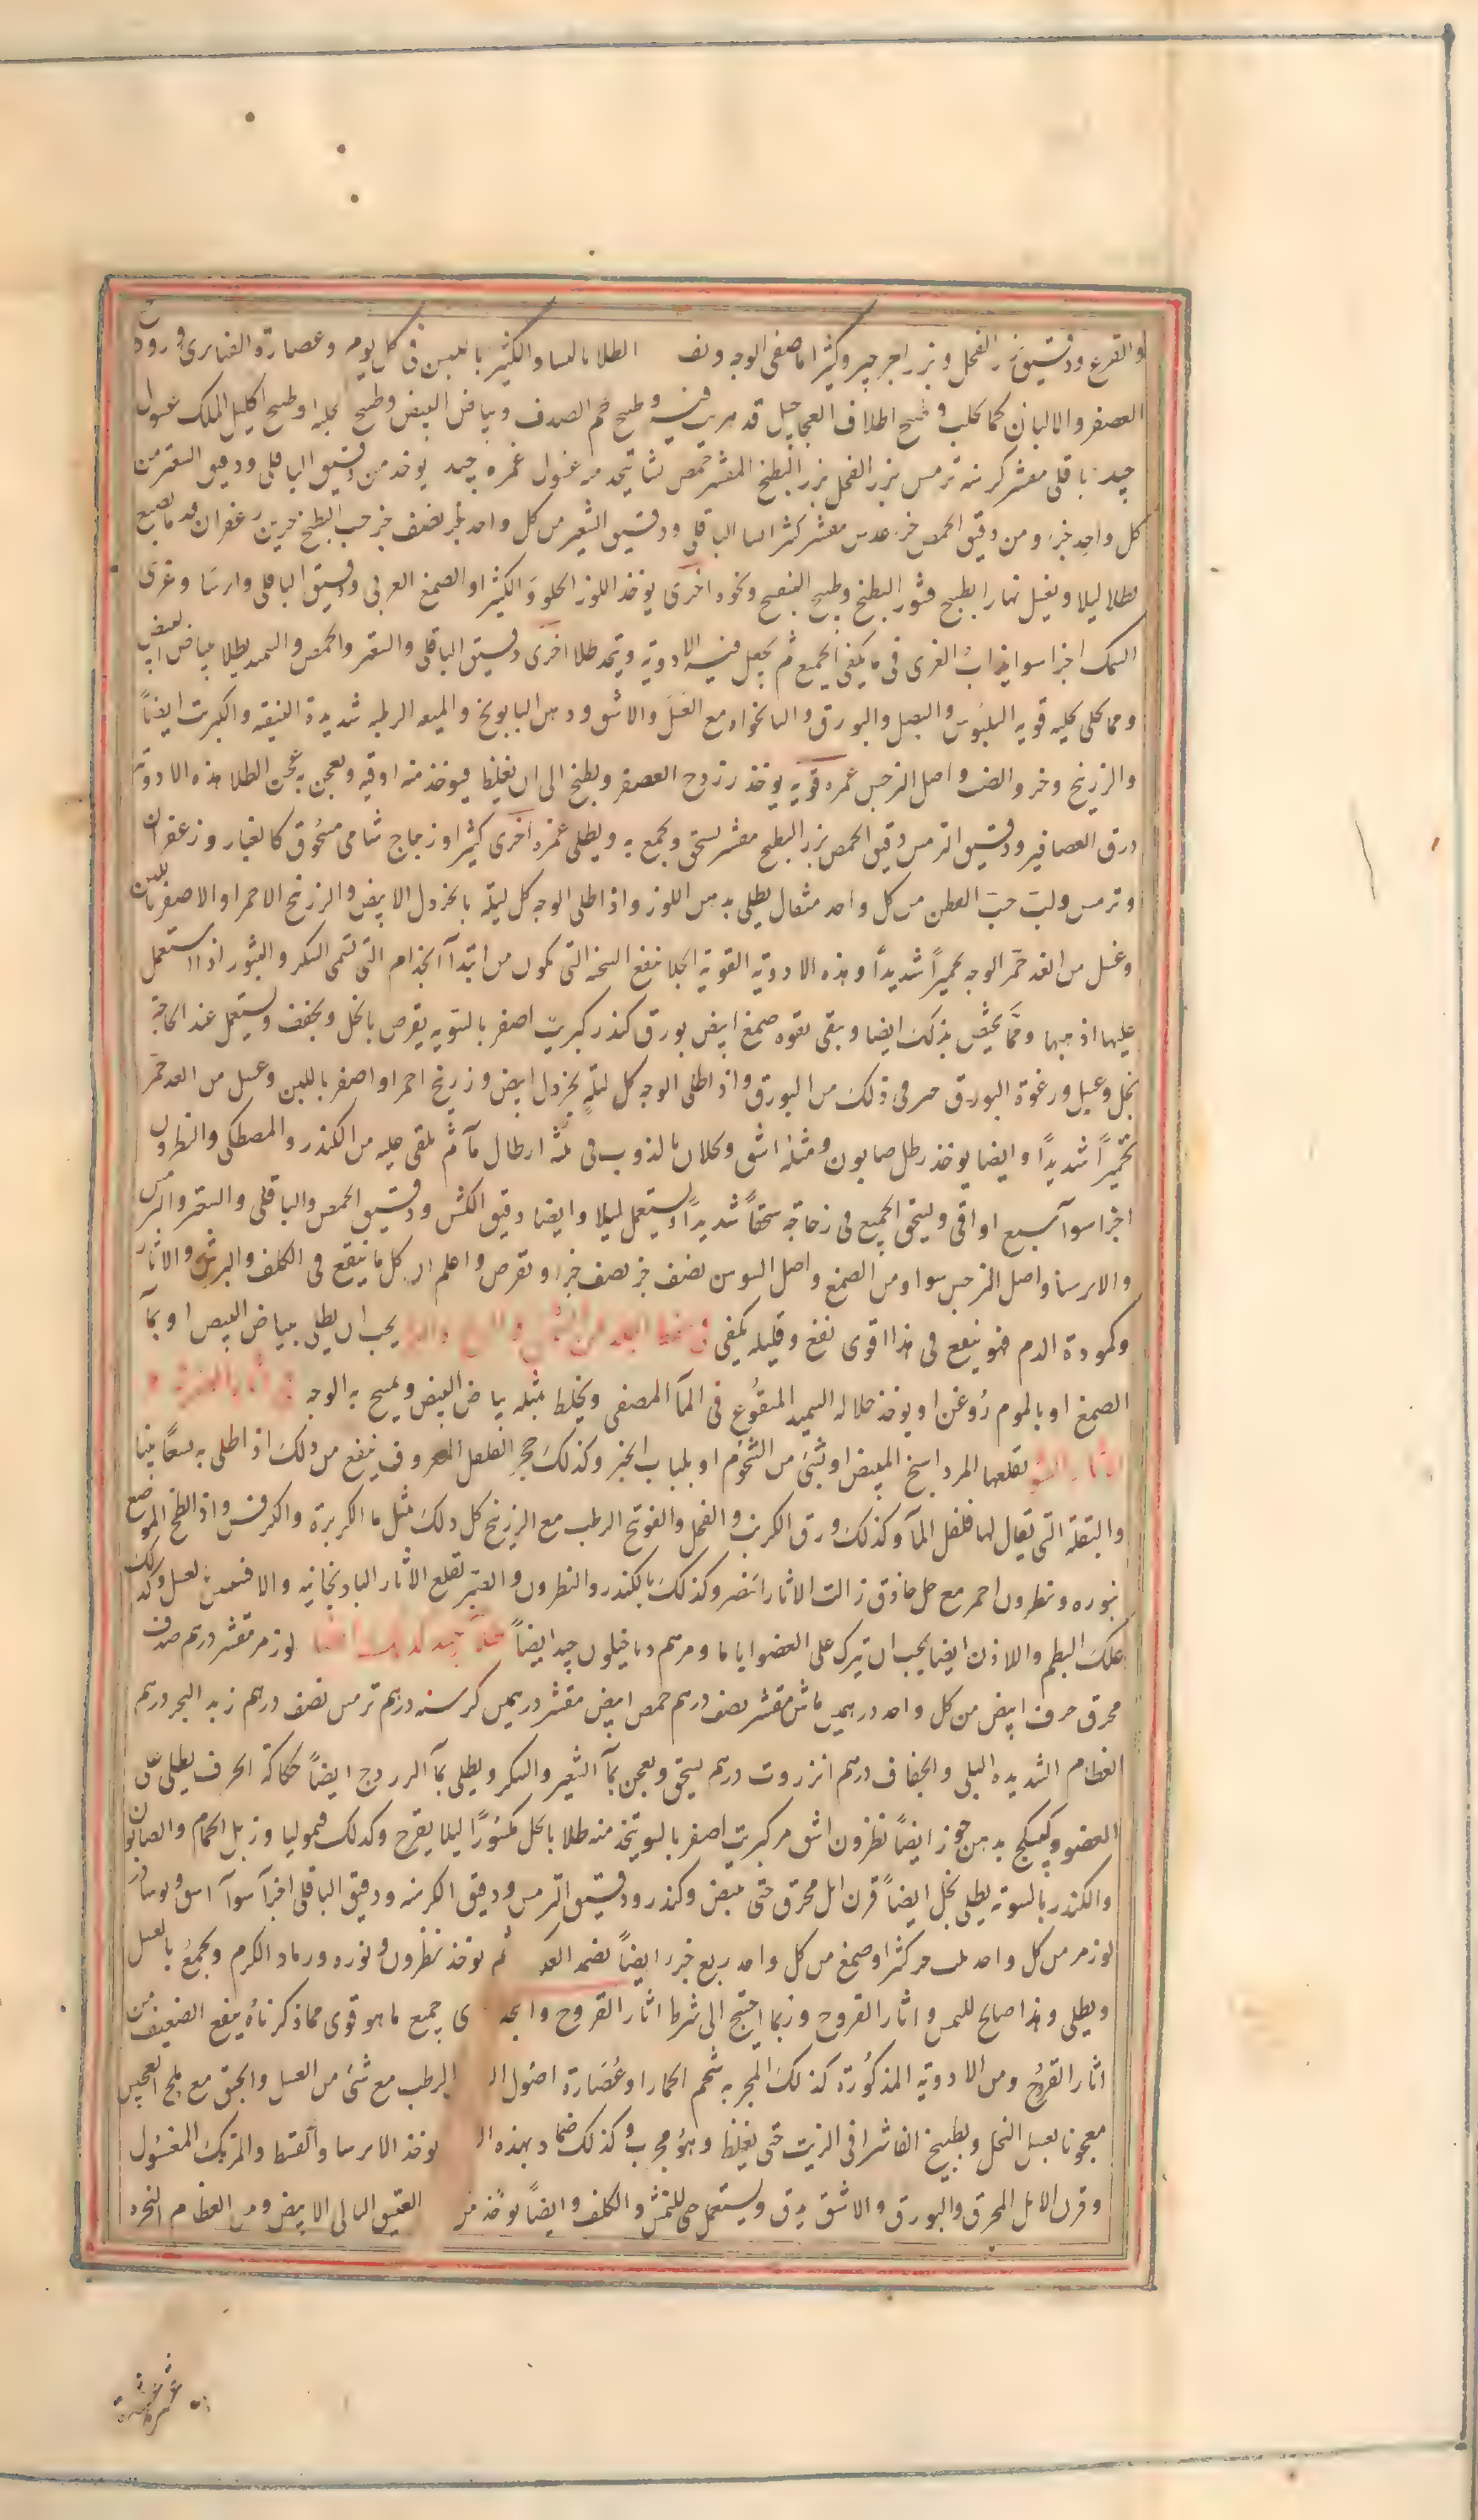 والقرع ودقيق بزر الفجل وبزر الجرجير وكثيرا مما يصفى الوجه الطلا بالنسا والكثير باللبن فى كل يوم وعصارة القنابرى
العصفر والالبان كما تحلب وطبيخ اظلاف العجاجيل قد هريت فيه وطبيخ لحم الصدف وبياض البيض وطبيخ الحلبه او طبيخ اكليل الملك غسول
جيد باقلى مقشر كرسنه ترمس بزر الفجل بزر البطيخ المقشر حمص نشا يتخذ منه غسول غمره جيد يوخذ من دقيق الباقلى ودقيق الشعير من
كل واحد جزء ومن دقيق الحمص جزء عدس مقشر كثيرا الباقلى ودقيق الشعير من كل واحد نصف جزء حب البطيخ جزين زعفران قدر ما يصبغ
يطلا ليلا ويغسل نهارا بطبيخ قشور البطيخ وطبيخ البنفسج ونحوه اخرى يوخذ اللوز الحلو والكثيرا والصمغ العربى ودقيق الباقلى وايرسا وغرى
السمك اجزا سوا يذاب الغرى فى ما يكفى الجميع ثم يجعل فيه الادوية ويتخذ طلا اخرى دقيق الباقلى والشعير والحمص والسميد يطلا ببياض البيض
ومما يجلى جليه قويه البلبوس والبصل والبورق والنانخواه مع العسل والاشق ودهن البابونج والميعه الرطبه شديدة التنقيه والكبريت ايضاً
والزرنيخ وخرو الضب واصل النرجس غمره قويه يوخذ زردج العصفر ويطبخ الى ان يغلظ فيوخذ منه اوقيه ويعجن به عجن الطلا هذه الادويه
ذرق العصافير ودقيق الترمس دقيق الحمص بزر البطيخ مقشر يسحق ويجمع به ويطلى غمره اخرى كثيرا وزجاج شامى مسحوق كالغبار وزعفران
وترمس ولب حب القطن من كل واحد مثقال يطلى بدهن اللوز واذا طلى الوجه كل ليلة بالخردل الابيض والزرنيخ الاحمر او الاصفر باللبن
وغسل من الغد حمر الوجه تحميراً شديداً وهذه الادوية القوية الجلا تنفع السحنه التى تكون من ابتدآ الجذام التى تسمى النكر والبثور اذا استعمل
عليها اذهبها ومما يختص بذلك ايضا ويبقى بقوه صمغ ابيض بورق كندر كبريت اصفر بالسويه يقرص بالخل ويجفف ويستعمل عند الحاجة
بخل وعسل ورغوة البورق حرف فى ذلك من البورق واذا طلى الوجه كل ليلة بخردل ابيض وزرنيخ احمر او اصفر باللبن وغسل من الغد حمر
تحميراً شديداً وايضا يوخذ رطل صابون ومثله اشق ويحلان بالذوب فى ثلثة ارطال مآ ثم يلقى عليه من الكندر والمصطكى والنطرون
اجزا سوآ سبع اواقى ويسحق الجميع فى زجاجة سحقاً شديداً ويستعمل ليلا وايضا دقيق الكشن ودقيق الحمص والباقلى والشعير والترمس
والايرسا واصل النرجس سوا ومن الصمغ واصل السوس نصف جز نصف جزا ويقرص واعلم ان كل ما ينفع فى الكلف والبرش والاثار
وكمودة الدم فهو ينفع فى هذا اقوى نفع وقليله يكفى يجب ان يطلى ببياض البيض او بمآ
الصمغ او بالموم روغن او يوخذ حلاله السميد المنقوع فى المآ المصفى ويخلط بمثله بياض البيض ويمسح به الوجه
يقلعها المرداسنج المبيض او بشئ من الشحوم او بلباب الخبز وكذلك حجر الفلفل المعروف ينفع من ذلك اذا طلى به
والبقلة التى يقال لها فلفل المآ وكذلك ورق الكرنب والفجل والفوتنج الرطب مع الزرنيخ كل ذلك بمثل ما الكزبرة والكرفس واذا لطخ الموضع
بنوره ونطرون احمر مع خل حاذق زالت الاثار الخضر وكذلك بالكندر والنطرون والعنبر لقلع الاثار الباذنجانيه والافسنتين بعسل وكذلك
علك البطم واللاذن ايضا يجب ان يترك على العضو اياما ومرهم دياخيلون جيد ايضاً لوز مر مقشر درهم صدف
محرق حرف ابيض من كل واحد درهمين ماش مقشر نصف درهم حمص ابيض مقشر درهمين كرسنه درهم ترمس نصف درهم زبد البحر درهم
العظام الشديده البلى والجفاف درهم انزروت درهم يسحق ويعجن بمآ الشعير والسكر ويطلى بمآ الزردج ايضاً حكاكة الخزف يطلى على
العضو وكبيكج بدهن جوز ايضاً نطرون اشق مر كبريت اصفر بالسويه يتخذ منه طلا بالخل مكسوراً ليلا يقرح وكذلك قيموليا وزبل الحمام والصابون
والكندر بالسوية يطلى بخل ايضاً قرن ايل محرق حتى يبيض وكندر ودقيق الترمس ودقيق الكرسنه ودقيق الباقلى اجزآ سوآ
لوز مر من كل واحد كثيرا وصمغ من كل واحد ربع جزء ايضاً يضمد ثم يوخذ نطرون ونوره ورماد الكرم ويجمع بالعسل
ويطلى وهذا صالح للنمش واثار القروح وربما احتيج الى شرط اثار القروح جميع ما هو قوى مما ذكرناه ينفع الضعيف من
اثار القروح ومن الادوية المذكورة كذلك المجربه شحم الحمار او عصارة اصول الرطب مع شئ من العسل والحبق مع ملح العجين
معجونا بعسل النحل وبطبيخ الفاشرا فى الزيت حتى يغلظ وهو مجرب وكذلك ضماد بهذه يوخذ الايرسا والقسط والمرتك المغسول
وقرن الايل المحرق والبورق والاشق يدق ويستعمل حتى للنمش والكلف وايضاً يوخذ من العتيق البالى الابيض ومن العظام النخره